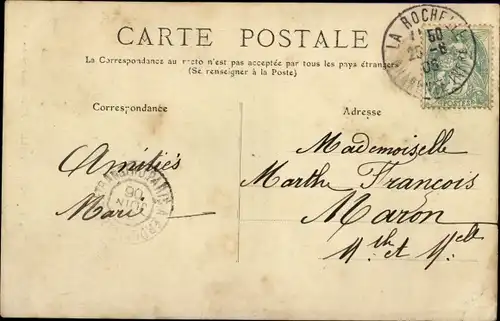 CARTE POSTALE
La Correspondance au recto n'est pas acceptée par tous les pays étrangers
(Se renseigner à la Poste)
Correspondance
Adresse
LA ROCHELLE
11 50
25 -6
06
POSTES
Amitiés
Marie
Mademoiselle
Marthe François
Maron
Mth et Mlle
JUIN
06